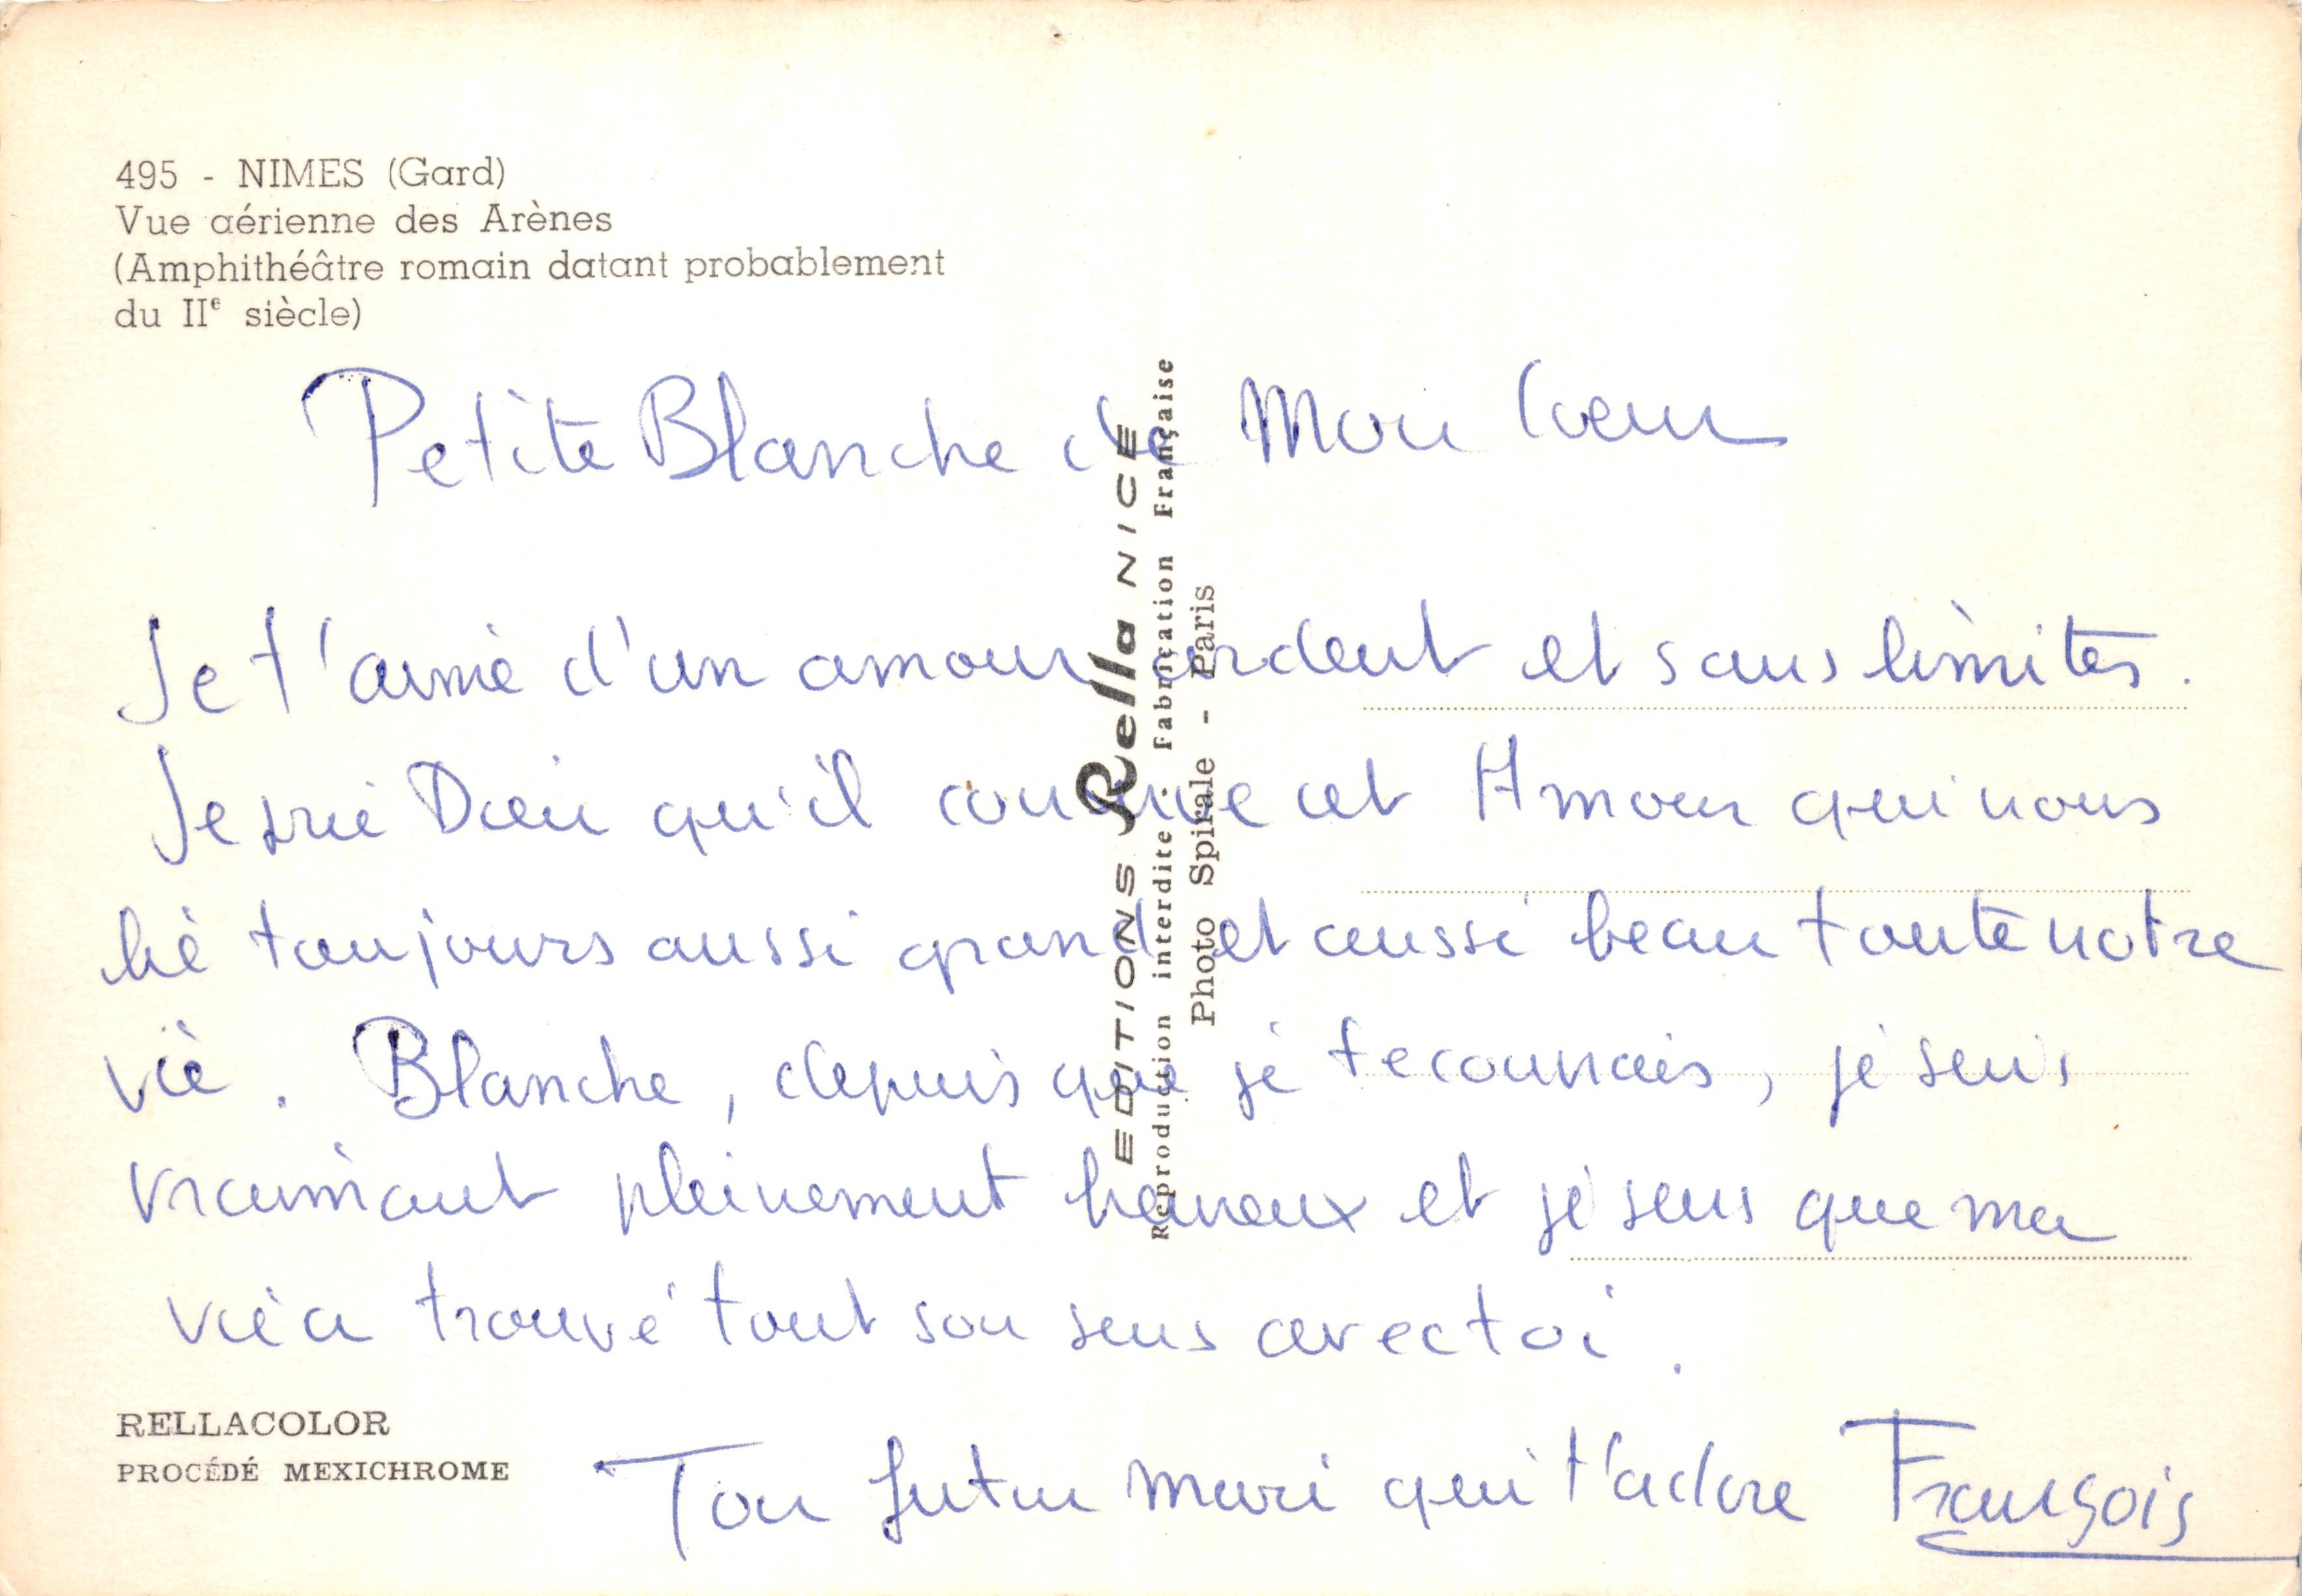 495 - NIMES (Gard)
Vue aérienne des Arènes
(Amphithéâtre romain datant probablement
du IIe siècle)
Petite Blanche de Mon Coeur
Je t'aime d'un amour ardent et sans limites.
Je prie Dieu qu'il conserve cet Amour qui nous
lie toujours aussi grand et aussi beau toute notre
vie. Blanche, depuis que je te connais, je suis
vraimant pleinement heureux et je sens que ma
vie a trouvé tout son sens avec toi.
Ton futur mari qui t'adore François
EDITIONS Rella NICE
Reproduction interdite. Fabrication Française
Photo Spirale - Paris
RELLACOLOR
PROCÉDÉ MEXICHROME